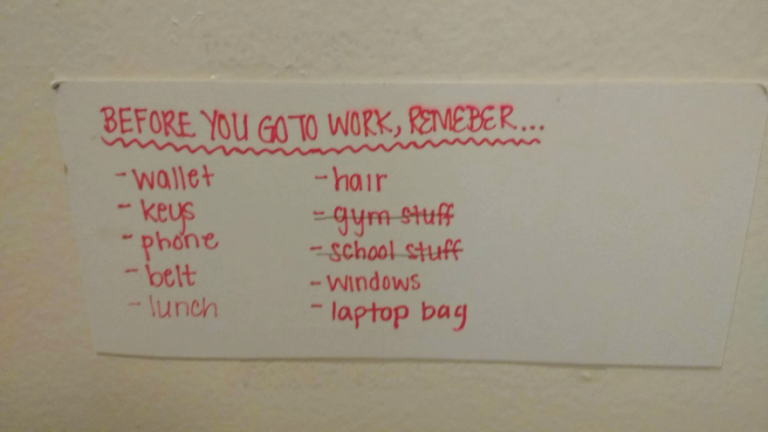 BEFORE YOU GO TO WORK, REMEBER...
- wallet
- keys
- phone
- belt
- lunch
- hair
- gym stuff
- school stuff
- windows
- laptop bag